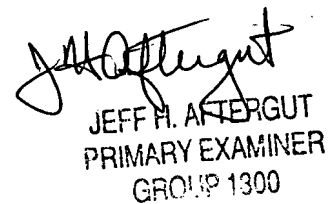 J H Aftergut
JEFF H. AFTERGUT
PRIMARY EXAMINER
GROUP 1300